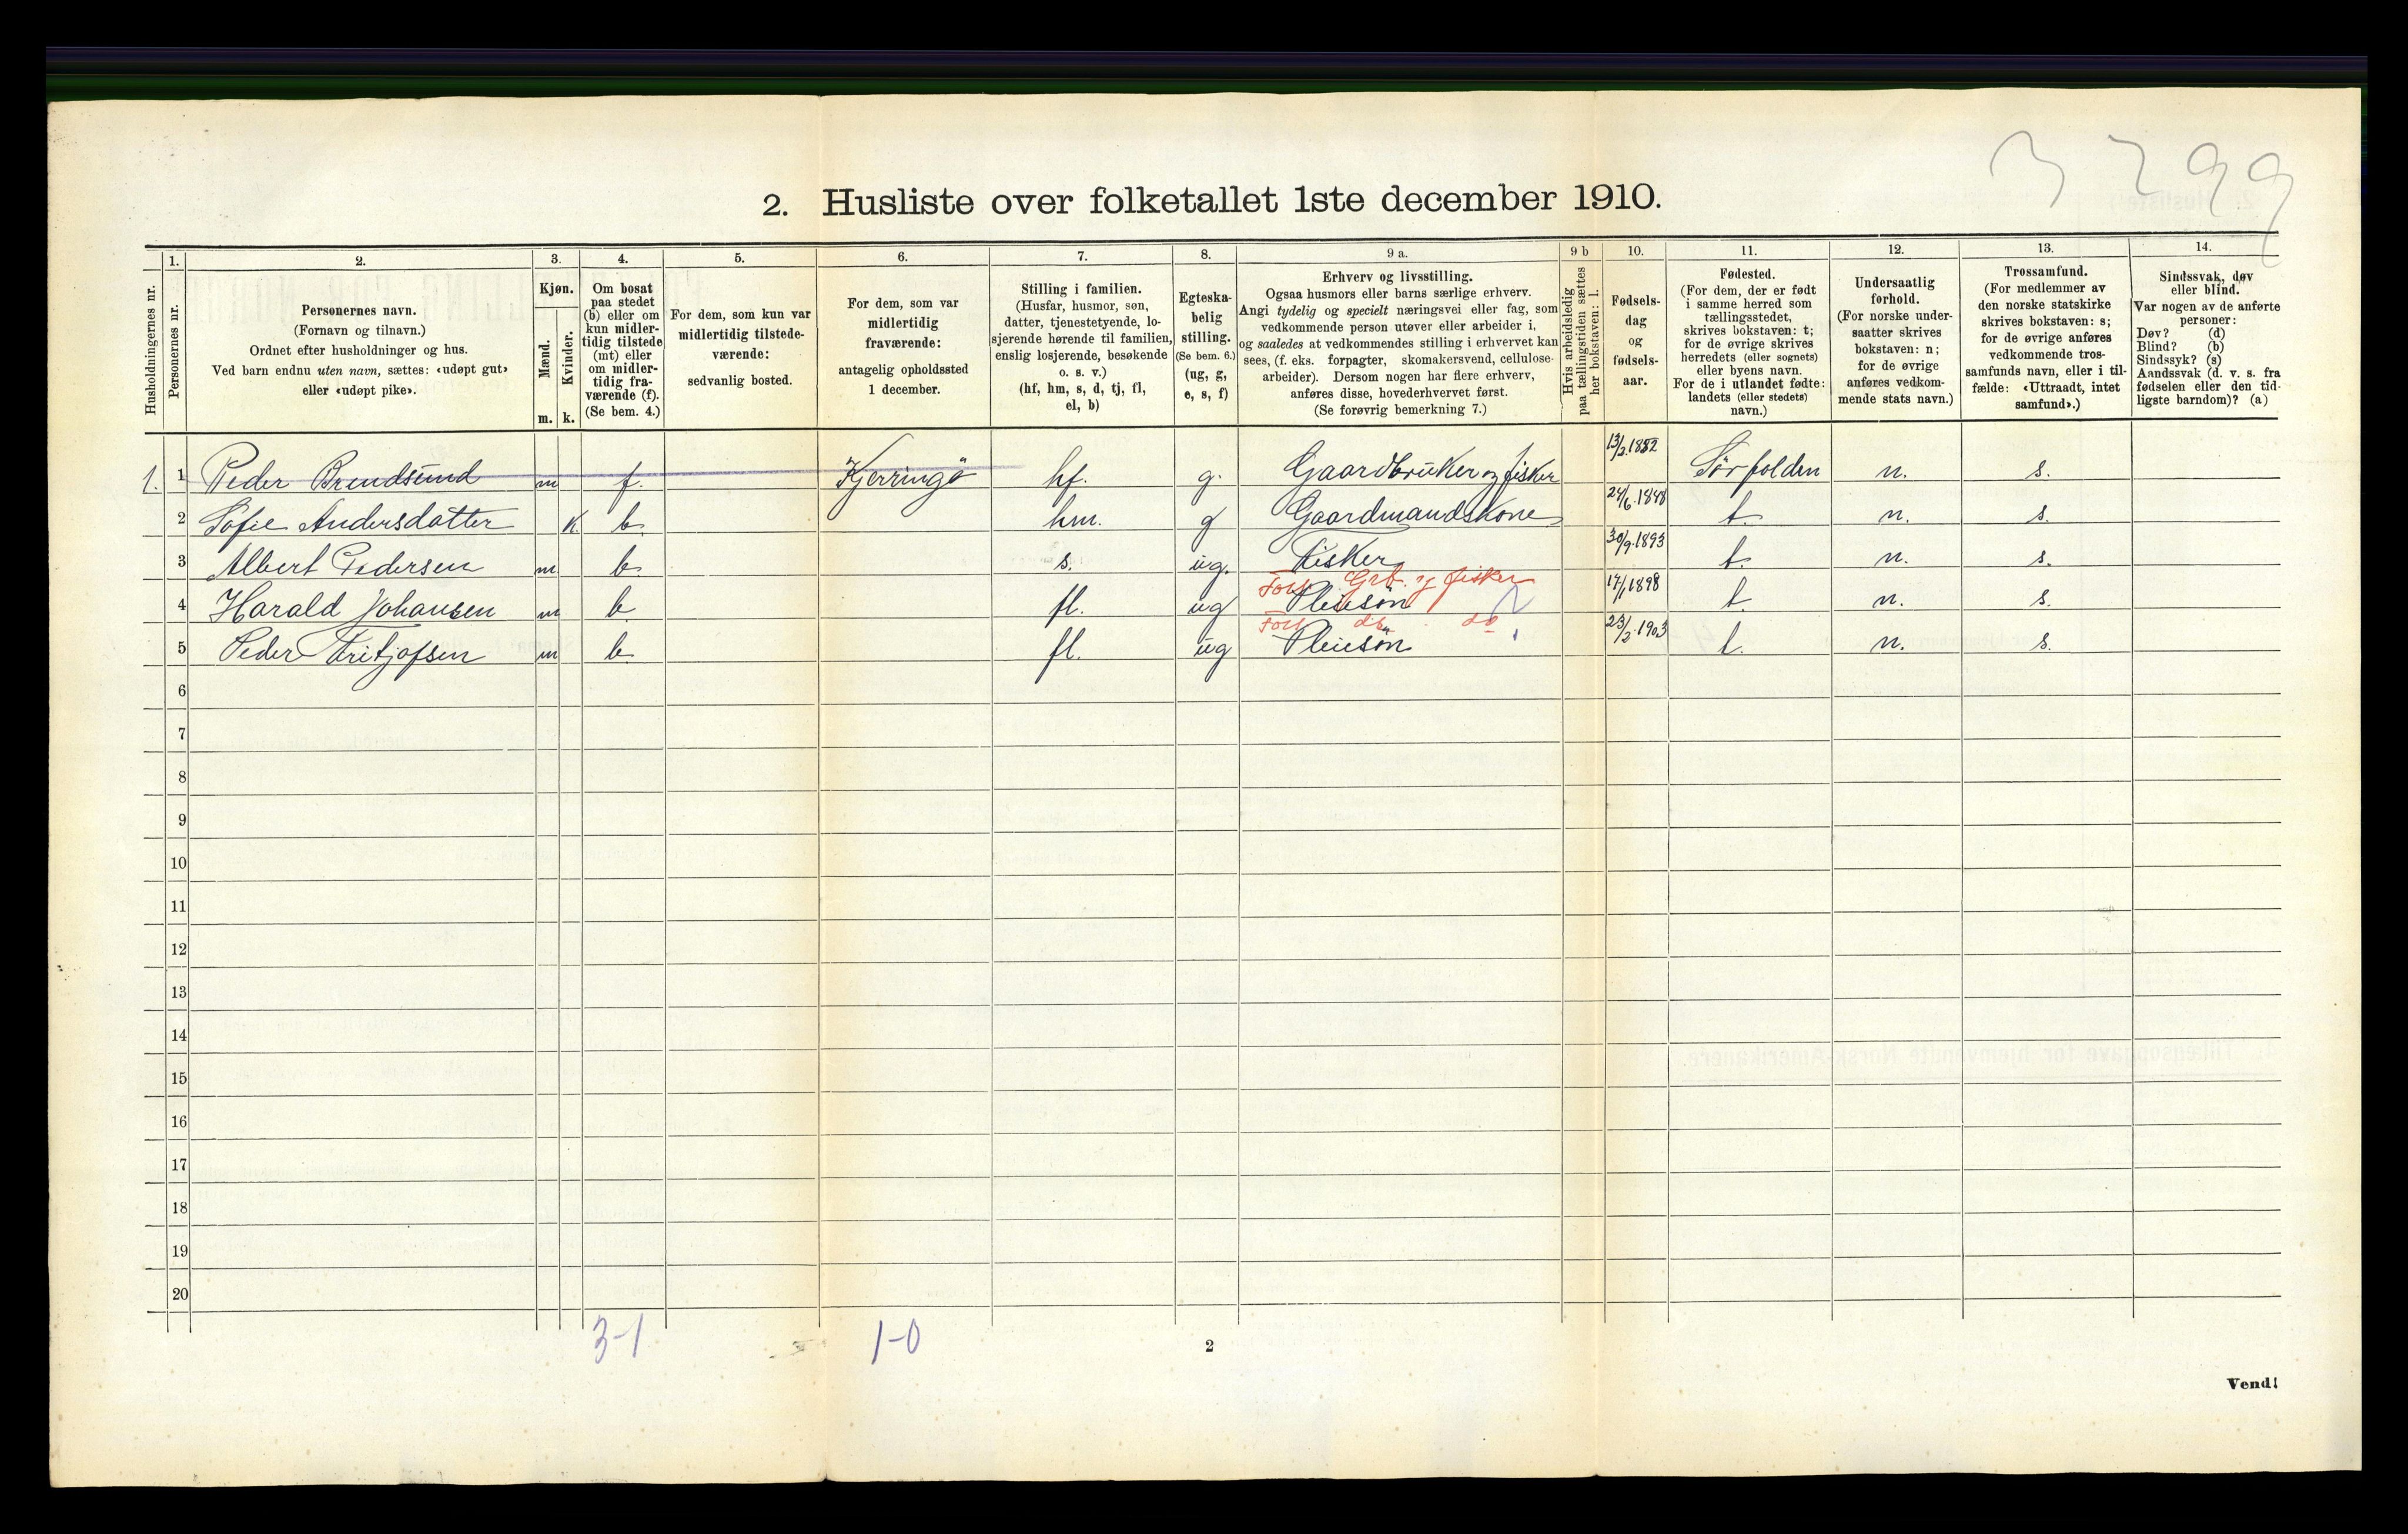 3 299
2. Husliste over folketallet 1ste december 1910.
Husholdningernes nr.
1. Personernes nr.
2. Personernes navn. (Fornavn og tilnavn.) Ordnet efter husholdninger og hus. Ved barn endnu uten navn, sættes: «udøpt gut» eller «udøpt pike».
3. Kjøn. Mænd. m. Kvinder. k.
4. Om bosat paa stedet (b) eller om kun midlertidig tilstede (mt) eller om midlertidig fraværende (f). (Se bem. 4.)
5. For dem, som kun var midlertidig tilstedeværende: sedvanlig bosted.
6. For dem, som var midlertidig fraværende: antagelig opholdssted 1 december.
7. Stilling i familien. (Husfar, husmor, søn, datter, tjenestetyende, losjerende hørende til familien, enslig losjerende, besøkende o. s. v.) (hf, hm, s, d, tj, fl, el, b)
8. Egteskabelig stilling. (Se bem. 6.) (ug, g, e, s, f)
9 a. Erhverv og livsstilling. Ogsaa husmors eller barns særlige erhverv. Angi tydelig og specielt næringsvei eller fag, som vedkommende person utøver eller arbeider i, og saaledes at vedkommendes stilling i erhvervet kan sees, (f. eks. forpagter, skomakersvend, cellulosearbeider). Dersom nogen har flere erhverv, anføres disse, hovederhvervet først. (Se forøvrig bemerkning 7.)
9 b Hvis arbeidsledig paa tællingstiden sættes her bokstaven: l.
10. Fødselsdag og fødselsaar.
11. Fødested. (For dem, der er født i samme herred som tællingsstedet, skrives bokstaven: t; for de øvrige skrives herredets (eller sognets) eller byens navn. For de i utlandet fødte: landets (eller stedets) navn.)
12. Undersaatlig forhold. (For norske undersaatter skrives bokstaven: n; for de øvrige anføres vedkommende stats navn.)
13. Trossamfund. (For medlemmer av den norske statskirke skrives bokstaven: s; for de øvrige anføres vedkommende trossamfunds navn, eller i tilfælde: «Uttraadt, intet samfund».)
14. Sindssvak, døv eller blind. Var nogen av de anførte personer: Døv? (d) Blind? (b) Sindssyk? (s) Aandssvak (d. v. s. fra fødselen eller den tidligste barndom)? (a)
1. 1 Peder Brendsund m f. Kjerringö hf. g. Gaardbruker og fisker 13/3 1852 Sörfolden n. s.
2 Sofie Andersdatter k. b. hm. g Gaardmandskone 24/6 1848 t. n. s.
3 Albert Pedersen m b s. ug. Fisker 30/9 1893 t. n. s.
Fors Grb. og fisker
4 Harald Johansen m b. fl. ug Pleiesön 17/1 1898 t. n. s.
Fors do do
5 Peder Fritjofsen m b fl. ug Pleiesön 23/2 1903 t. n. s.
6
7
8
9
10
11
12
13
14
15
16
17
18
19
20
3-1 1-0
2
Vend!